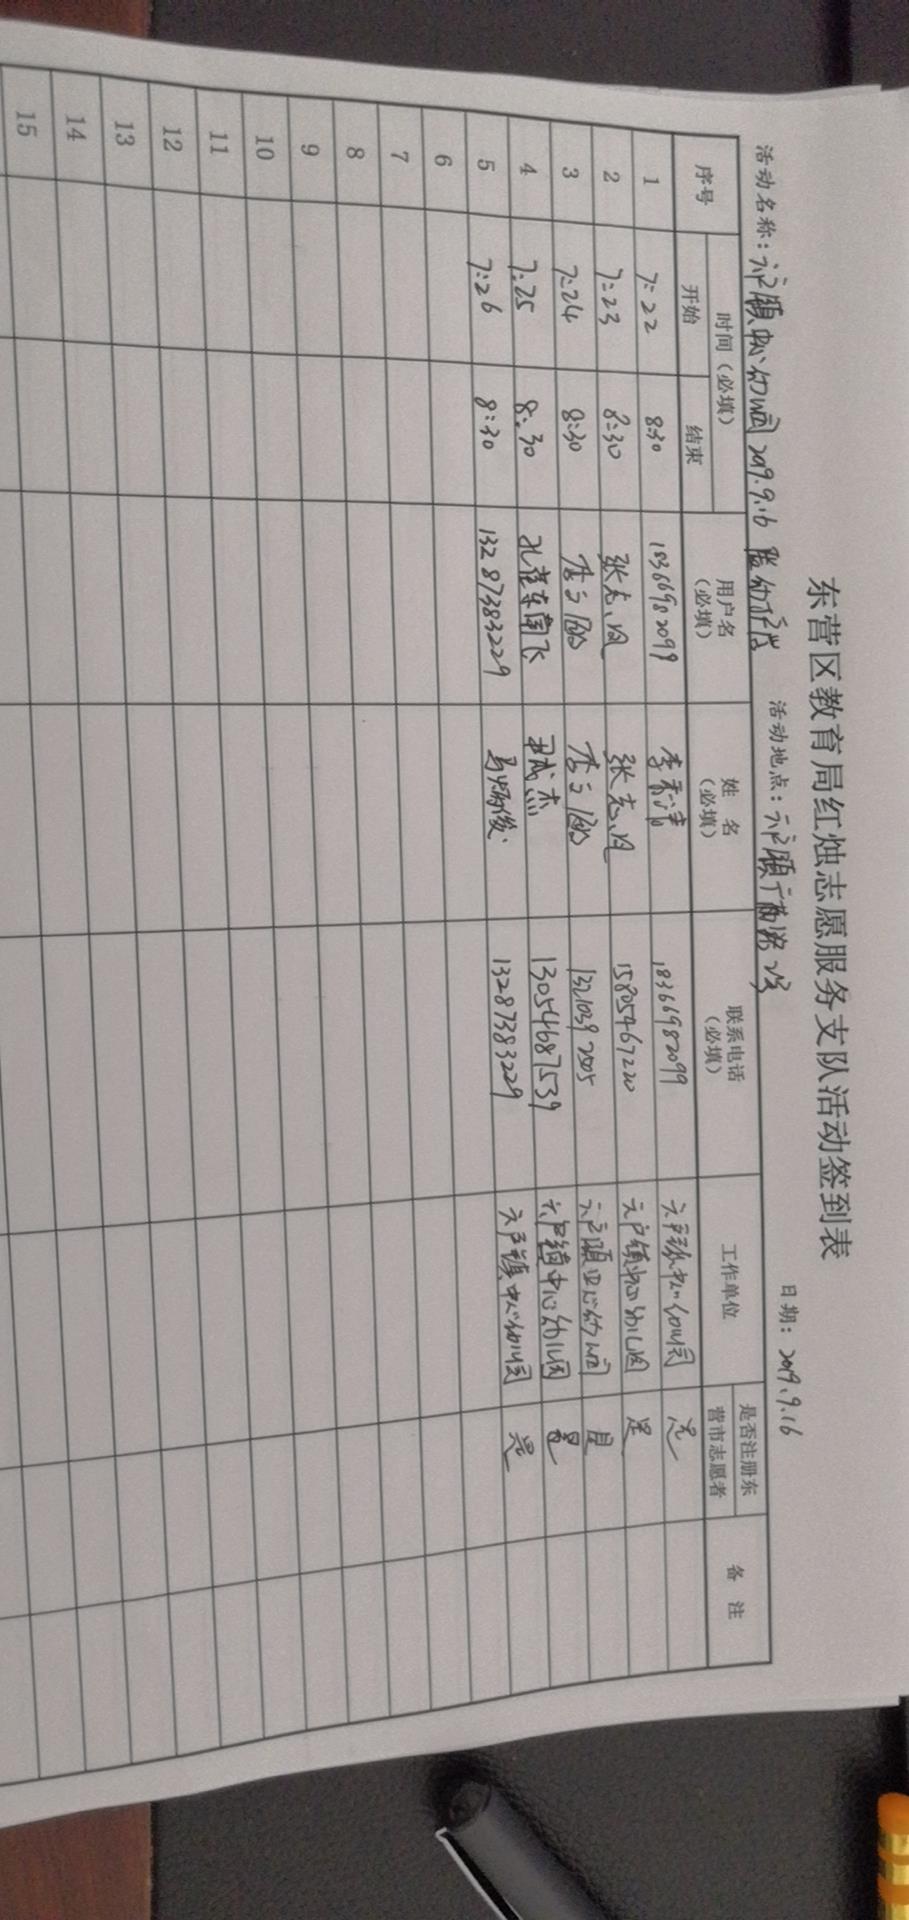 东营区教育局红烛志愿服务支队活动签到表
活动名称：六户镇中心幼儿园2019.9.16 活动地点：六户镇 日期：2019.9.16
序号 时间（必填） 用户名（必填） 姓名（必填） 联系电话（必填） 工作单位 是否注册东营市志愿者 备注
开始 结束
1 7:22 8:30 18366982099 李秀清 18366982099 六户镇中心幼儿园 是
2 7:23 8:30 张志凤 张志凤 15805467220 六户镇中心幼儿园 是
3 7:24 8:30 13210392505 六户镇中心幼儿园 是
4 7:25 8:30 13054687539 六户镇中心幼儿园 是
5 7:26 8:30 13287383229 13287383229 六户镇中心幼儿园 是
6
7
8
9
10
11
12
13
14
15